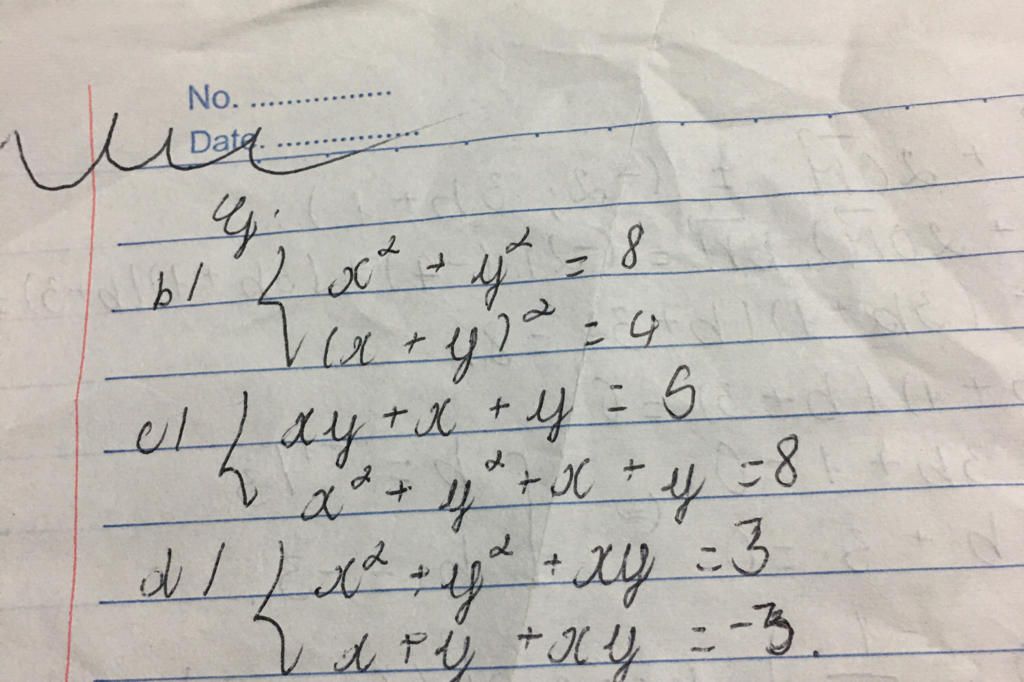 No. ................
Date. ....................
b/ { x² + y² = 8
(x + y)² = 4
c/ { xy + x + y = 5
x² + y² + x + y = 8
d/ { x² + y² + xy = 3
x + y + xy = -3.